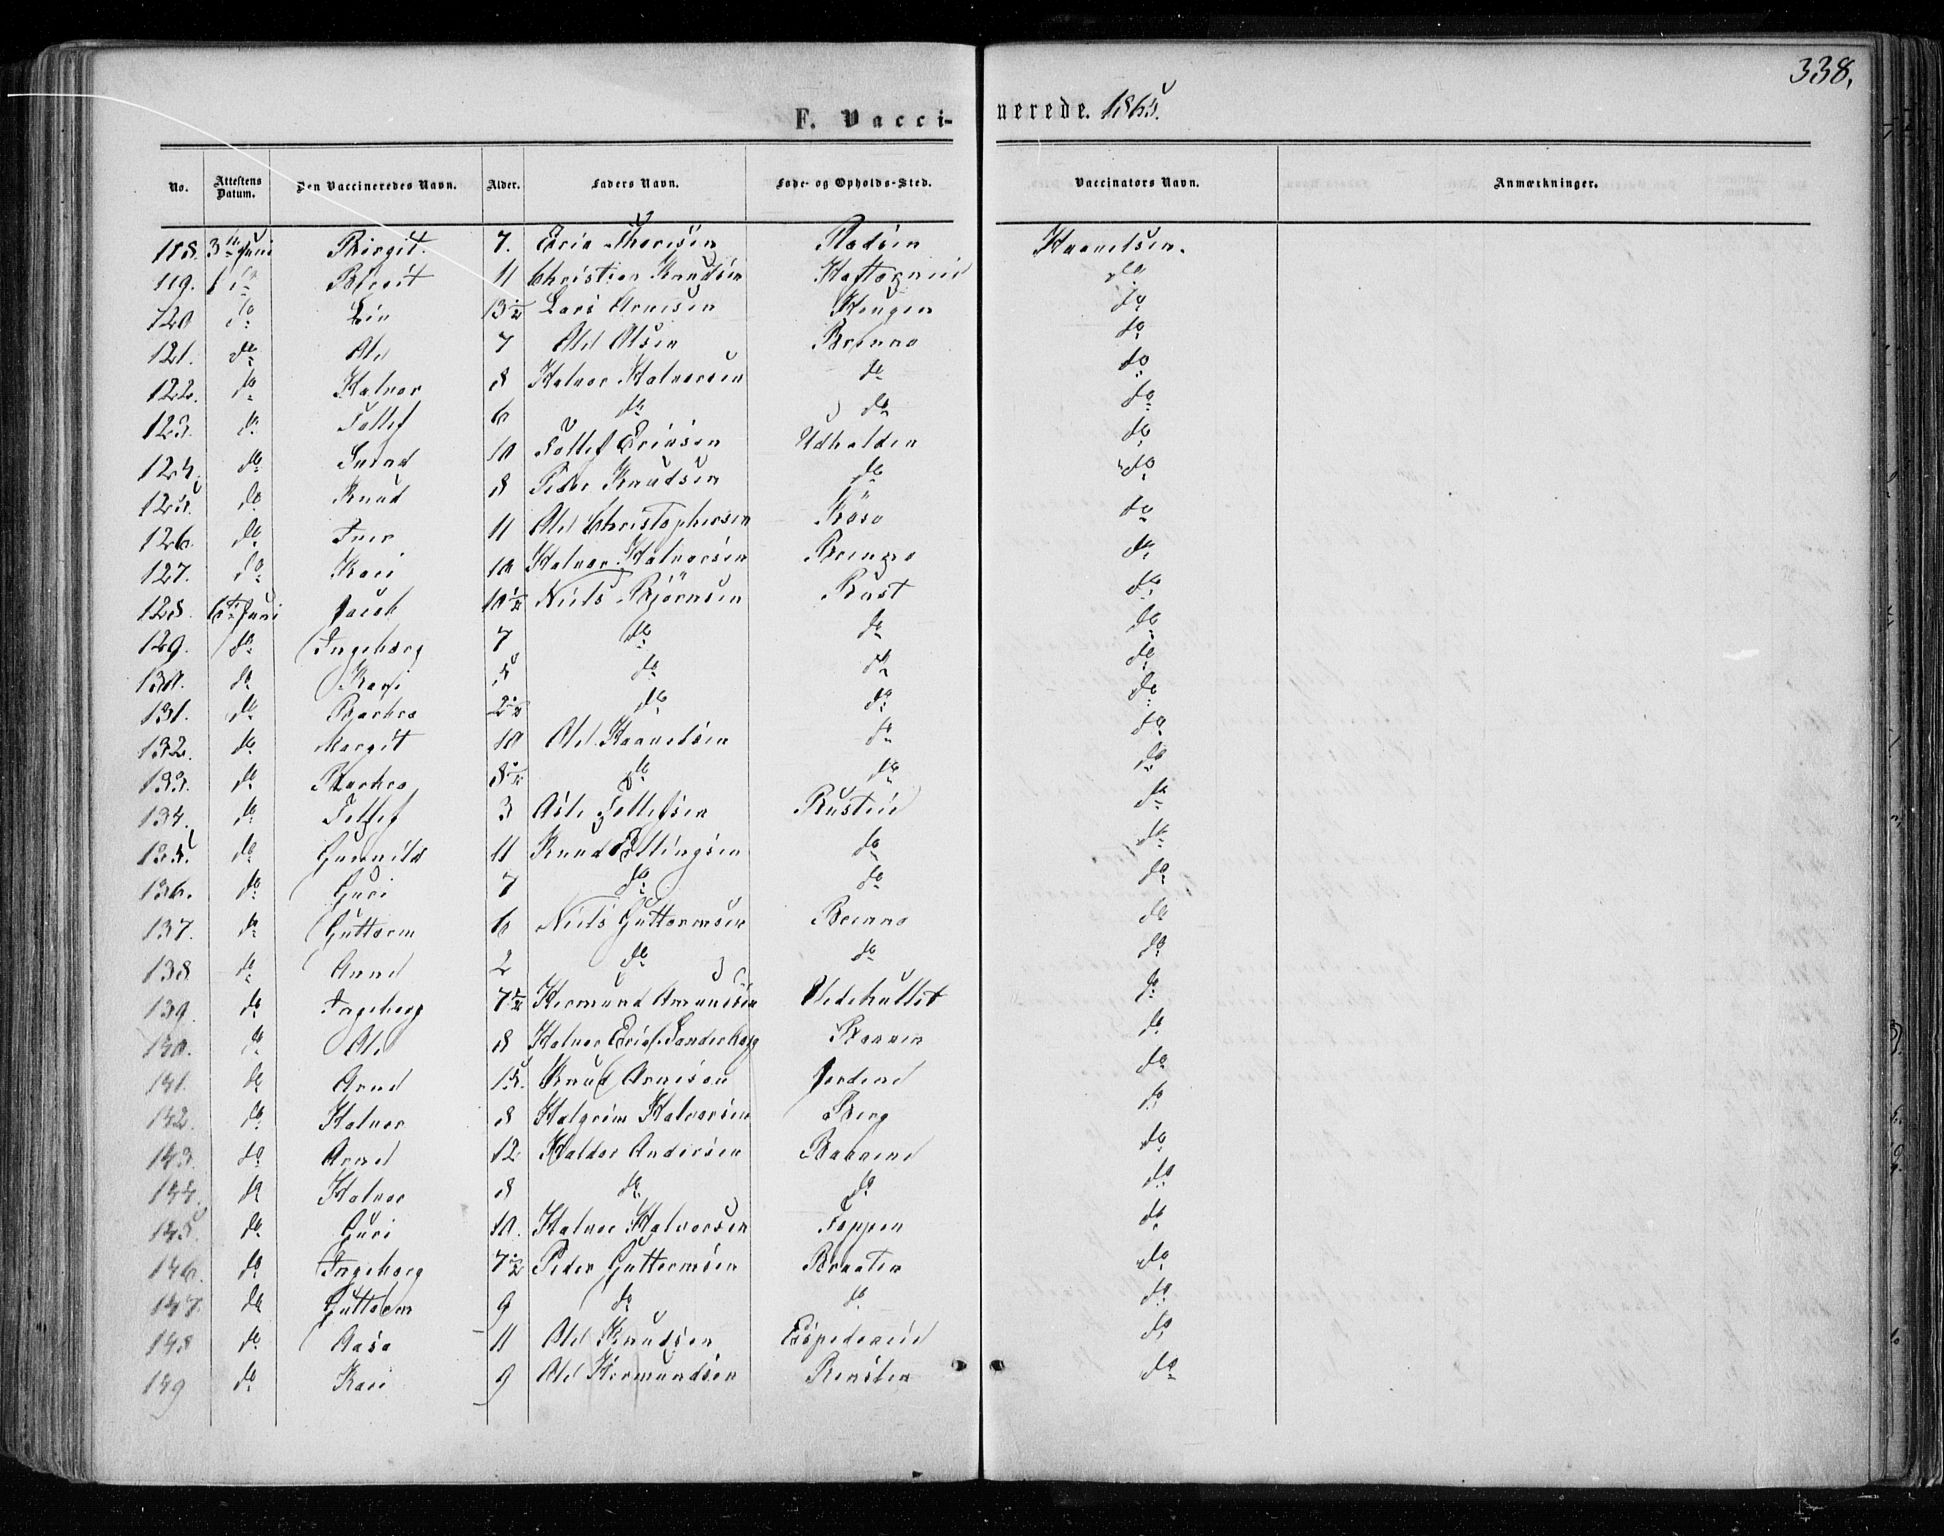 338.
F. Vacci-nerede. 1865.
No. Attestens Datum. Den Vaccineredes Navn. Alder. Faders Navn. Føde- og Opholds-Sted. Vaccinators Navn. Anmærkninger.
118. 3die Juni Birgit. 7. Thoresen Kaavelsen.
119. Birgit 11 Christian Knudsen do
120 do 13½ Lars Arnesen Haugen do
121. do Ole 7 Ole Olsen Brenno do
122. do Halvor 8 Halvor Halvorsen do do
123. do Tollef 6 do do do
124. do Svend 10 Tollef Ericksen do
125. do Knud 8 Peder Knudsen do do
126. do Iver 11 Ole Christophersen do
127. do Kari 10 Halvor Halvorsen do
128. 6te Juni Jacob 10½ Niels Bjørnsen Rust do
129. do Ingeborg 7 do do do
130. do Kari 5 do do do
131. do Barbro 2½ do do do
132. do Margit 10 Ole Kaavelsen do do
133. do Barbro 8½ do do do
134. do Tollef 3 Asle Tollefsen Rusteie do
135. do Gunnild 11 Knud Ellingsen do do
136. do Guri 7 do do do
137. do Guttorm 6 Niels Guttormsen Brenno do
138 do Anne 2 do do do
139. do Ingeborg 7½ Hermund Amundsen do
140. do Ole 8 Halvor do
141. do Arne 15. Knud Arnesen Jordene do
142. do Halvor 8 Halgrim Halvorsen Berg do
143. do Arne 12 Haldor Andersen do
144. do Halvor 8 do do do
145. do Guri 10. Halvor Halvorsen Toppen do
146. do Ingeborg 7½ Peder Guttormsen Braaten do
147. do Guttorm 9 do do do
148 do Aase 11 Ole Knudsen Espedereie do
149 do Kari 9 Ole Hermundsen do